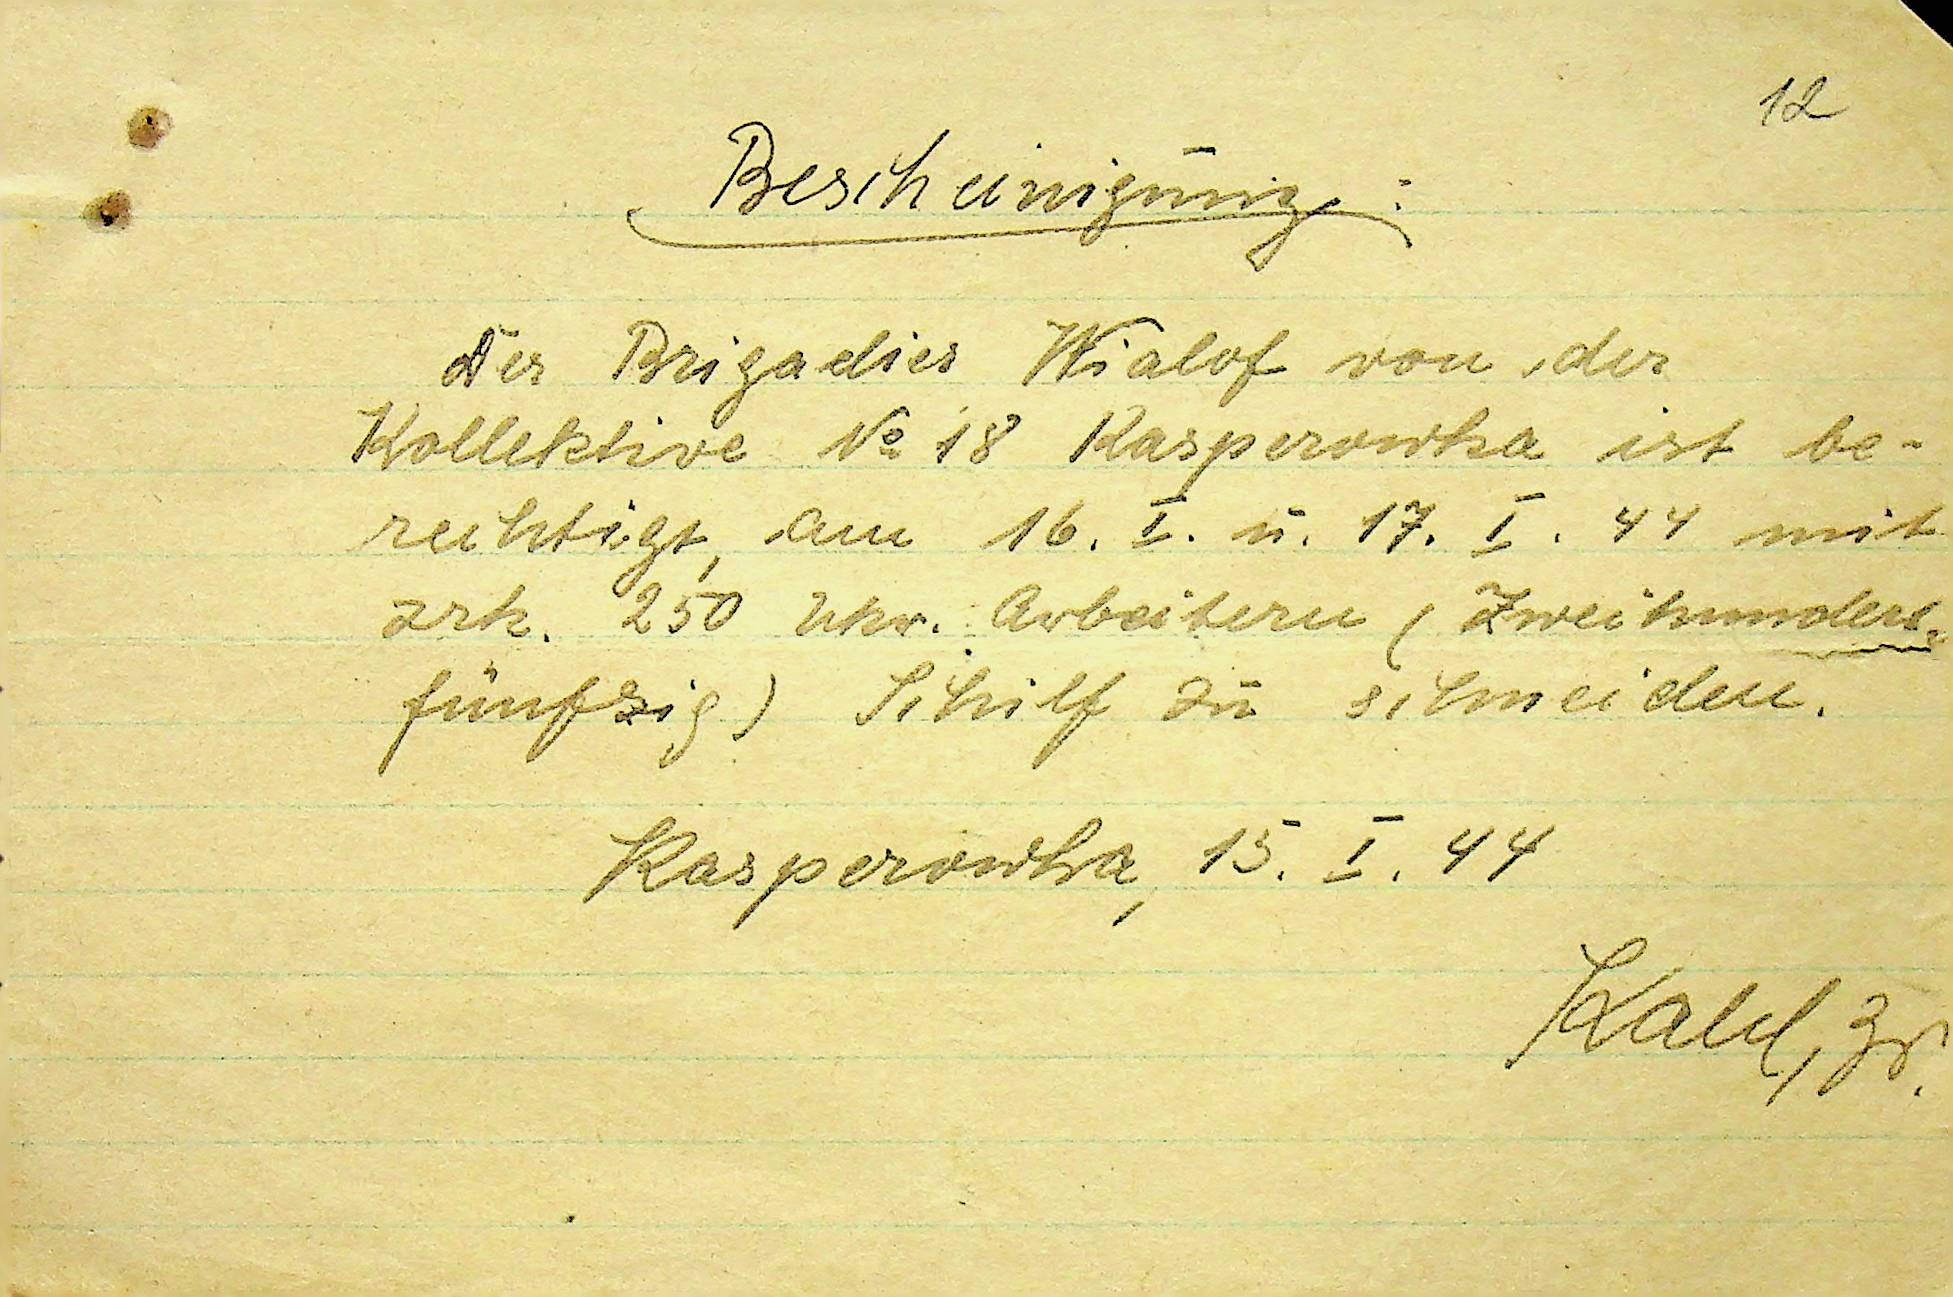 12
Bescheinigung:
Der Brigadier Wialof von der
Kollektive № 18 Kasperowka ist be-
rechtigt, am 16. I. u. 17. I. 44 mit
zrk. 250 Ukr. Arbeitern (Zweihundert-
fünfzig) Schilf zu schneiden.
Kasperowka, 15. I. 44